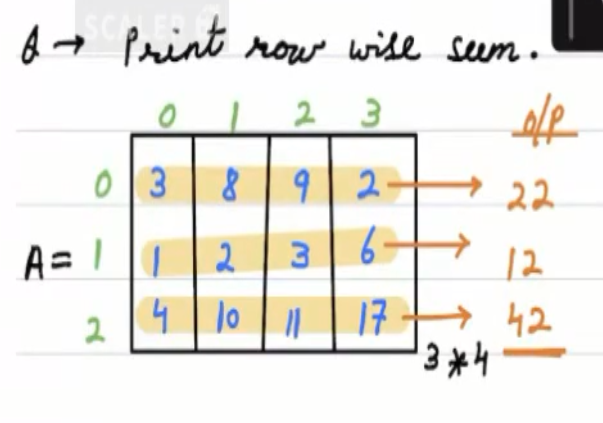 SCALER
Q → Print row wise sum.
0 1 2 3 O/P
0 3 8 9 2 → 22
A = 1 1 2 3 6 → 12
2 4 10 11 17 → 42
3 * 4